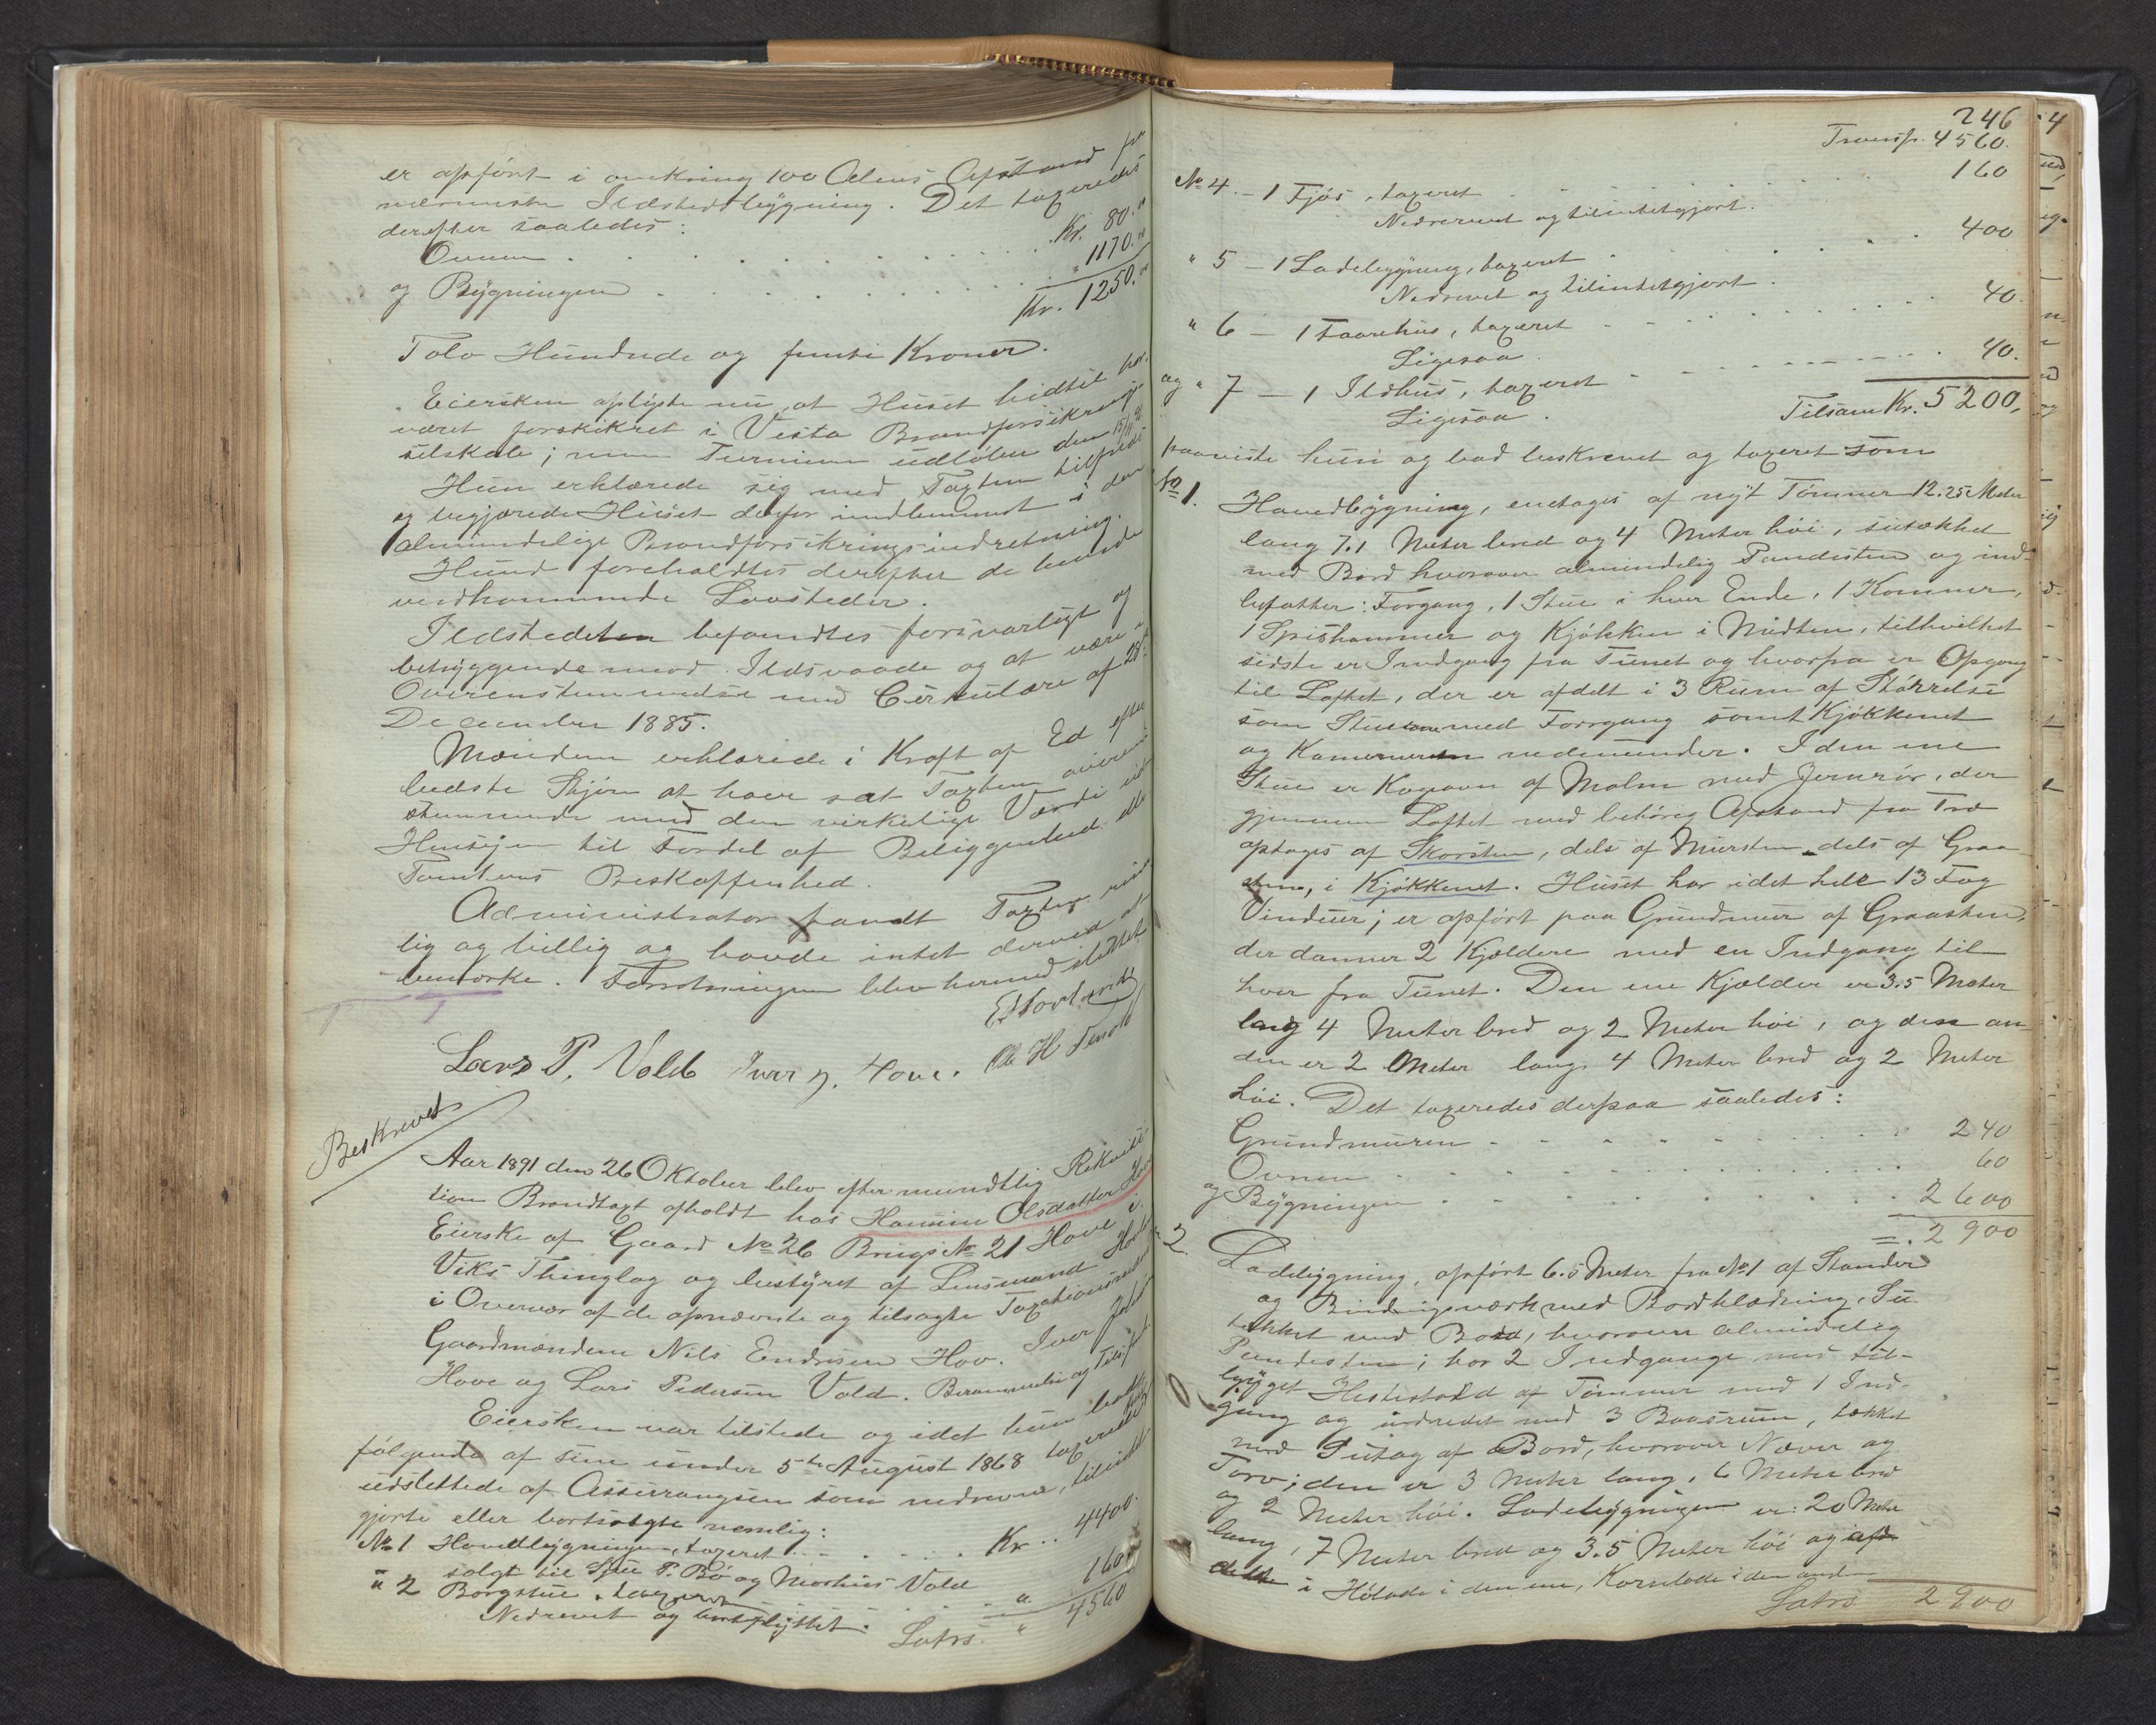 er opført i omkring 100 Alens Afstand fra
nærmeste Ildstedsbygning. Det taxeredes
derefter saaledes:
Ovnen . . . Kr. 80.00
og Bygningen . . . " 1170.00
Kr. 1250.00
Tolv Hundrede og femti Kroner.
Eiersken oplyste nu, at Huset hidtil har
været forsikret i Vesta Brandforsikrings-
selskab; men Terminen udløber den 15/11 91
Hun erklærede sig med Taxten tilfreds
og begjærede Huset derfor indlemmet i den
almindelige Brandforsikringsindretning.
Hund foreholdtes derefter de herved
vedkommende Lovsteder.
Ildstederne befandtes forsvarligt og
betryggende mod Ildsvaade og at være i
Overenstemmelse med Cirkulære af 28de
December 1885.
Mændene erklærede i Kraft af Ed efter
bedste Skjøn at have sat Taxten overens
stemmende med den virkelige Værdi uden
Hensyn til Fordel af Beliggenhed eller
Tomtens Beskaffenhed.
Administrator fandt Taxten rime
lig og billig og havde intet derved at
bemærke. Forretningen blev hermed sluttet
E Hovland
Lars P. Vold Iver J. Hove. Ole H Tenold
Beskrevet
Aar 1891 den 26 Oktober blev efter mundtlig Rekvisi-
tion Brandtaxt afholdt hos Hannine Olsdatter Hove
Eierske af Gaard No 26 Brugs No 21 Hove i
Viks Thinglag og bestyret af Lensmand Hovland
i Overvær af de opnævnte og tilsagte Taxationsmænd
Gaardmændene Nils Endresen Hov. Iver Johns
Hove og Lars Pedersen Vold. Berammelse og Tilsigt.
Eiersken var tilstede og idet hun bad
følgende af sine under 5te August 1868 taxerede
udslettede af Assurancen som nedrevne, tilintet
gjorte eller bortsolgte nemlig:
No 1 Hovedbygningen, taxeret . . . Kr. 4400.
solgt til P. Bø og Markus Vold
" 2 Borgstue, taxeret . . . " 160
Nedrevet og bortflyttet.
Latrs. " 4560
246
Transp. 4560.
No 4. – 1 Fjøs, taxeret . . . 160
Nedrevet og tilintetgjort.
" 5 – 1 Ladebygning, taxeret . . . 400
Nedrevet og tilintetgjort.
" 6 – 1 Faarehus, taxeret . . . 40.
Ligesaa
og " 7 – 1 Ildhus, taxeret . . . 40.
Ligesaa . Tilsam Kr. 5200,
paaviste hun og bad beskrevet og taxeret som
No 1. Hovedbygning, enetages af nyt Tømmer 12.25 Meter
lang 7.1 Meter bred og 4 Meter høi, sutækket
med Bord hvorover almindelig Pandesten og ind-
befatter: Forgang, 1 Stue i hver Ende, 1 Kammer,
1 Spiskammer og Kjøkken i Midten, tilhvilket
sidste er Indgang fra Tunet og hvorfra er Opgang
til Loftet, der er afdelt i 3 Rum af Størrelse
som Stuerne med Forrgang samt Kjøkkenet
og Kamerene nedenunder. I den ene
Stue er Kogeovn af Malm med Jernrør, der
gjennem Loftet med behørig Afstand fra Træ
optages af Skorsten, dels af Mursten dels af Graa
sten, i Kjøkkenet. Huset har idet hele 13 Fag
Vinduer; er opført paa Grundmur af Graasten,
der danner 2 Kjældere med en Indgang til
hver fra Tunet. Den ene Kjælder er 3.5 Meter
lang 4 Meter bred og 2 Meter høi, og den an
den er 2 Meter lang, 4 Meter bred og 2 Meter
høi. Det taxeredes derpaa saaledes:
Grundmuren . . . 240
Ovnen . . . 60
og Bygningen . . . 2600
=. 2900
" 2 Ladebygning, opført 6.5 Meter fra No 1 af Stander
og Bindingsværk med Bordklædning, Su
tækket med Bord, hvorover almindelig
Pandesten; har 2 Indgange med til-
bygget Hestestald af Tømmer med 1 Ind-
gang og indredet med 3 Baasrum, tækket
med Sutag af Bord, hvorover Næver og
Torv; den er 3 Meter lang, 6 Meter bred
og 2 Meter høi. Ladebygningen er: 20 Meter
lang, 7 Meter bred og 3.5 Meter høi og afd
delt i Hølade i den ene, Kornlade i den anden
Latrs 2900